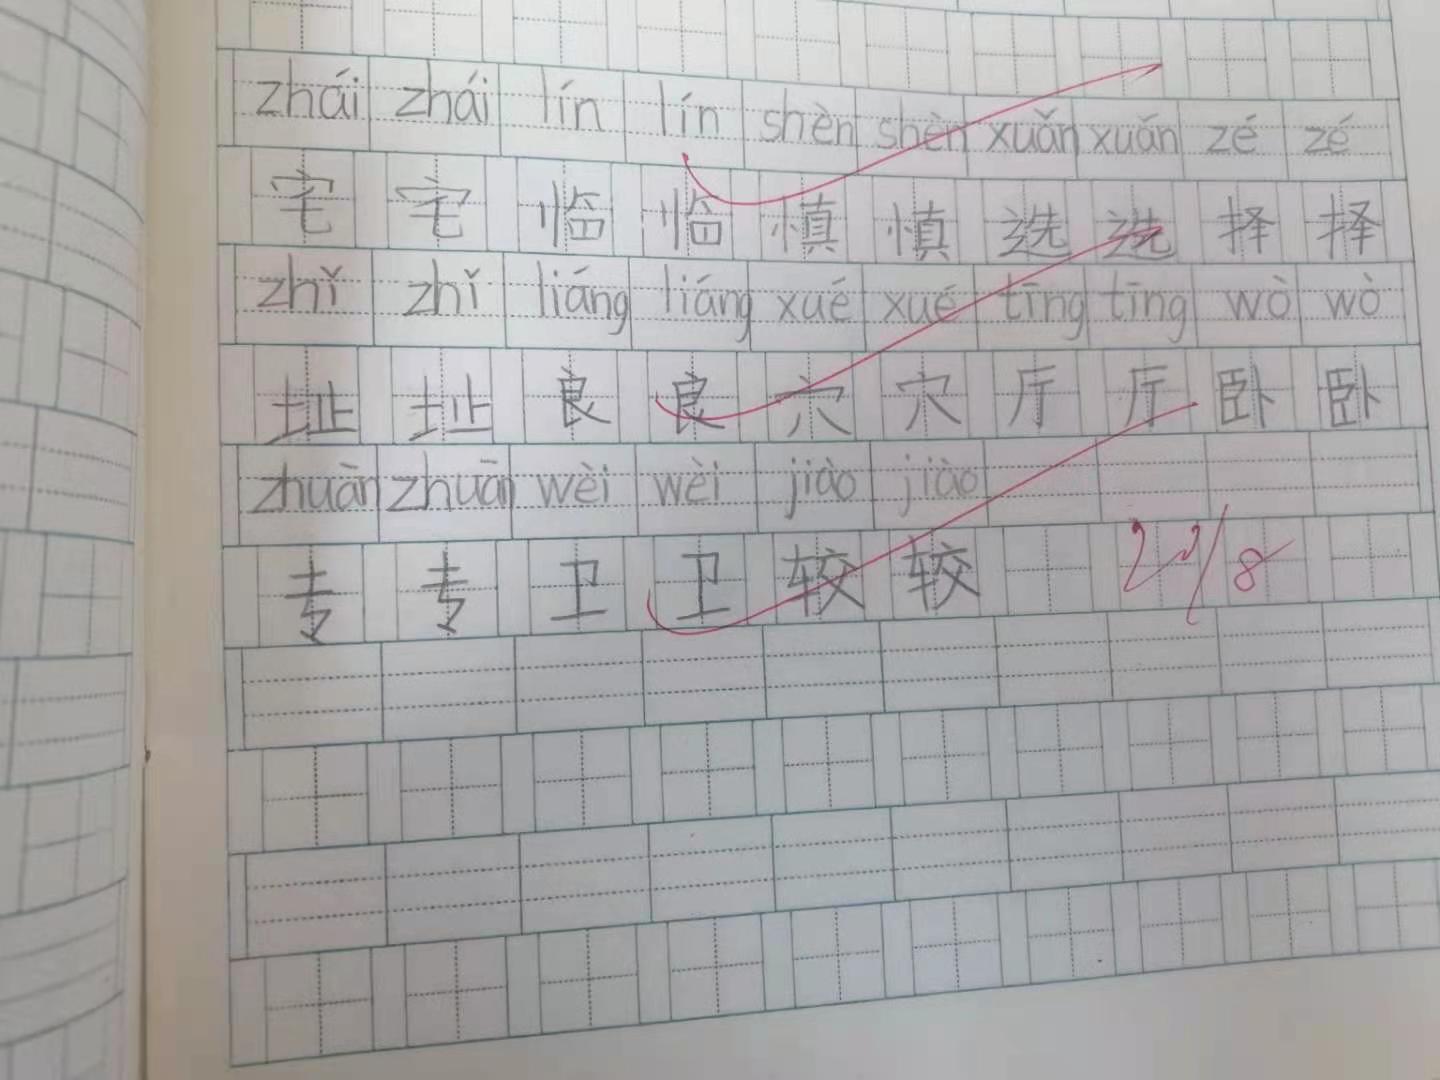 zhái zhái lín lín shèn shèn xuǎn xuǎn zé zé
宅 宅 临 临 慎 慎 选 选 择 择
zhǐ zhǐ liáng liáng xué xué tīng tīng wò wò
址 址 良 良 穴 穴 厅 厅 卧 卧
zhuān zhuān wèi wèi jiào jiào
专 专 卫 卫 较 较
22/8